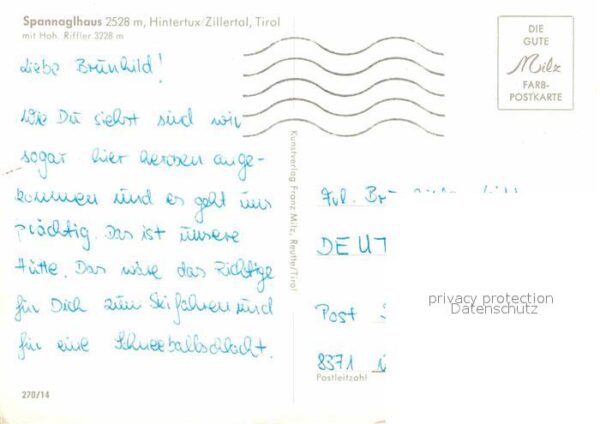 Spannaglhaus 2528 m, Hintertux/Zillertal, Tirol
mit Hoh. Riffler 3228 m
Liebe Brünhild!
Wie Du siehst sind wir
sogar hier heroben ange-
kommen und es geht uns
prächtig. Das ist unsere
Hütte. Das wäre das Richtige
für Dich zum Skifahren und
für eine Schneeballschlacht.
270/14
Kunstverlag Franz Milz, Reutte/Tirol
DIE
GUTE
Milz
FARB-
POSTKARTE
Frl.
DEUT
Post
8371
Postleitzahl
privacy protection
Datenschutz